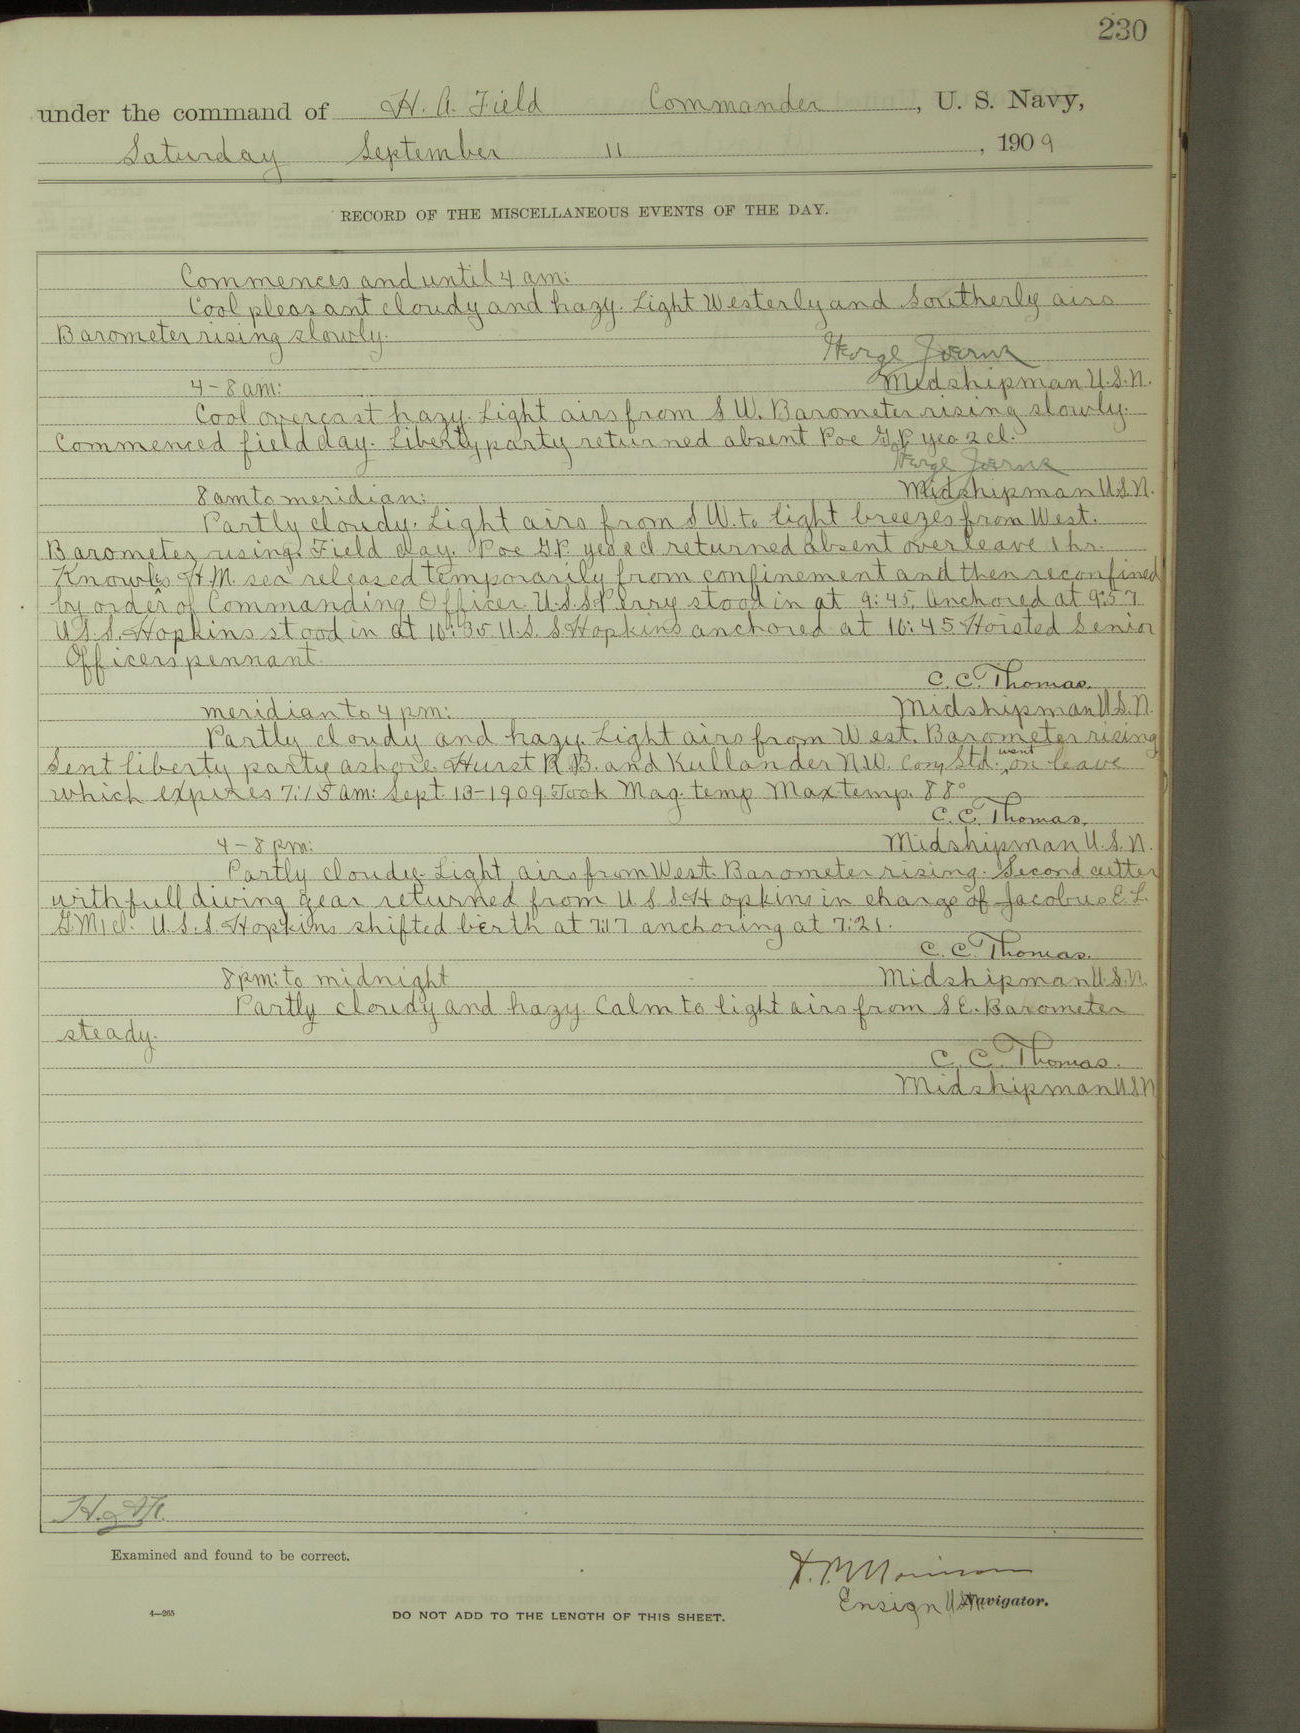 230
under the command of H. A. Field Commander, U. S. Navy,
Saturday September 11, 1909
RECORD OF THE MISCELLANEOUS EVENTS OF THE DAY.
Commences and until 4 am:
Cool pleasant cloudy and hazy. Light Westerly and Southerly airs
Barometer rising slowly.
George Joerns
4-8 am: Midshipman U.S.N.
Cool overcast hazy. Light airs from S W. Barometer rising slowly.
Commenced field day. Liberty party returned absent Poe G.P. yeo 2 cl.
George Joerns
8 am to meridian: Midshipman U.S.N.
Partly cloudy. Light airs from S W. to light breezes from West.
Barometer rising. Field day. Poe G.P. yeo 2 cl returned absent over leave 1 hr.
Knowles H.M. sea released temporarily from confinement and then reconfined
by order of Commanding Officer. U.S.S. Perry stood in at 9:45, Anchored at 9:57
U.S.S. Hopkins stood in at 10:35 U.S.S. Hopkins anchored at 10:45 Hoisted Senior
Officers pennant.
C. C. Thomas.
meridian to 4 pm: Midshipman U.S.N.
Partly cloudy and hazy. Light airs from West. Barometer rising
Sent liberty party ashore. Hurst R.B. and Kullander N.W. Coxy Std. went on leave
which expires 7:15 am: Sept. 13-1909 Took Mag. temp Max temp. 88°
C. C. Thomas.
4-8 pm: Midshipman U.S.N.
Partly cloudy. Light airs from West. Barometer rising. Second cutter
with full diving gear returned from U S S Hopkins in charge of Jacobus E. L.
G.M 1 cl. U.S.S. Hopkins shifted berth at 7:17 anchoring at 7:21.
C. C. Thomas.
8 pm: to midnight Midshipman U.S.N.
Partly cloudy and hazy. Calm to light airs from S E. Barometer
steady.
C. C. Thomas.
Midshipman U S N
Examined and found to be correct.
Ensign U.S.N. Navigator.
4—265
DO NOT ADD TO THE LENGTH OF THIS SHEET.